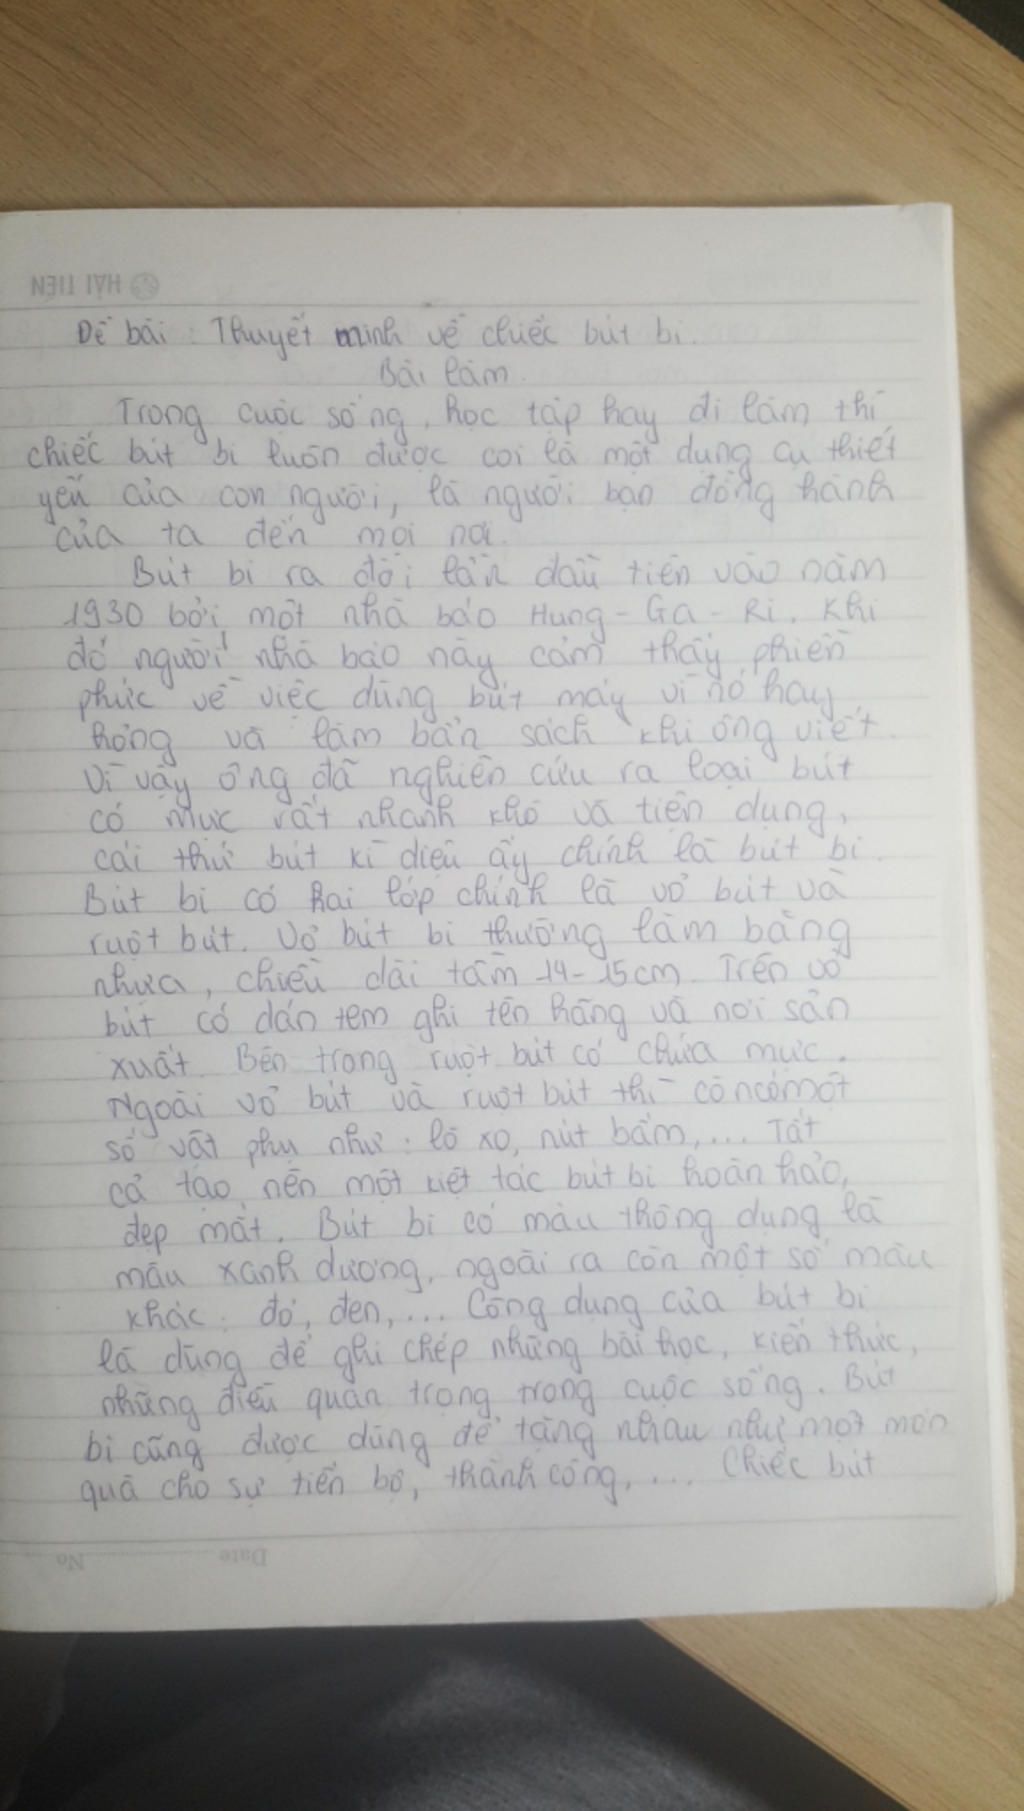 HẢI TIẾN
Đề bài: Thuyết minh về chiếc bút bi.
Bài làm.
Trong cuộc sống, học tập hay đi làm thì
chiếc bút bi luôn được coi là một dụng cụ thiết
yếu của con người, là người bạn đồng hành
của ta đến mọi nơi.
Bút bi ra đời lần đầu tiên vào năm
1930 bởi một nhà báo Hung-Ga-Ri. Khi
đó người nhà báo này cảm thấy phiền
phức về việc dùng bút máy vì nó hay
hỏng và làm bẩn sách khi ông viết.
Vì vậy ông đã nghiên cứu ra loại bút
có mực rất nhanh khô và tiện dụng,
cái thứ bút kì diệu ấy chính là bút bi.
Bút bi có hai lớp chính là vỏ bút và
ruột bút. Vỏ bút bi thường làm bằng
nhựa, chiều dài tầm 14-15cm. Trên vỏ
bút có dán tem ghi tên hãng và nơi sản
xuất. Bên trong ruột bút có chứa mực.
Ngoài vỏ bút và ruột bút thì còn có một
số vật phụ như: lò xo, nút bấm,... Tất
cả tạo nên một kiệt tác bút bi hoàn hảo,
đẹp mắt. Bút bi có màu thông dụng là
màu xanh dương, ngoài ra còn một số màu
khác: đỏ, đen,... Công dụng của bút bi
là dùng để ghi chép những bài học, kiến thức,
những điều quan trọng trong cuộc sống. Bút
bi cũng được dùng để tặng nhau như một món
quà cho sự tiến bộ, thành công,... Chiếc bút
Date No